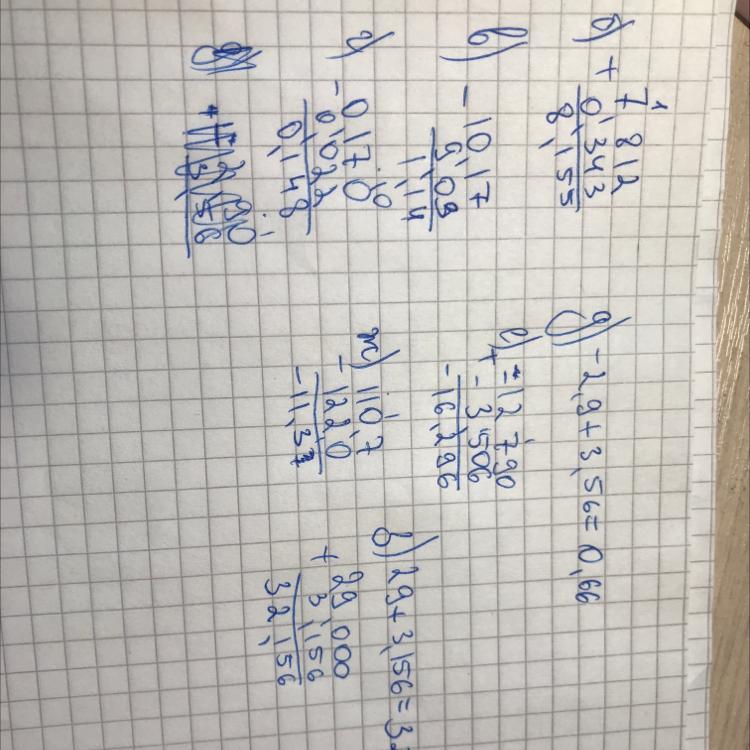 б) + 7,812
0,343
8,155
в) - 10,17
9,03
1,14
г) - 0,170
0,022
0,148
д) -2,9+3,56=0,66
е) + -12,790
-3,506
-16,296
ж) - 110,7
122,0
-11,3
в) 29+3,156=
+ 29,000
3,156
32,156